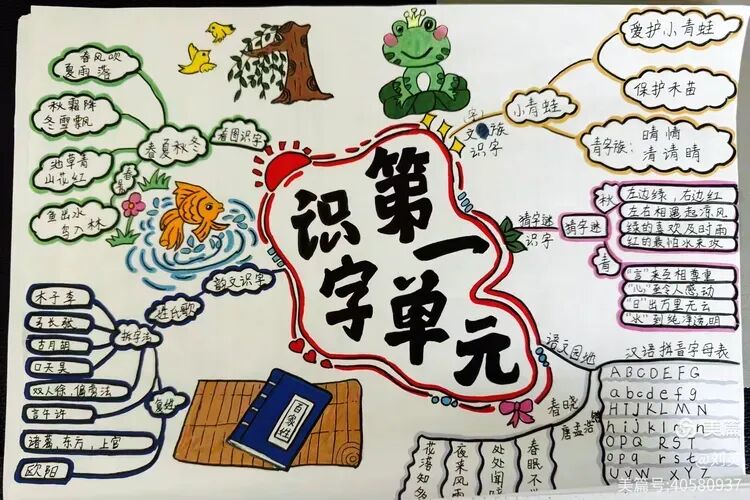 第一单元
识字
看图识字
春夏秋冬
春风吹
夏雨落
秋霜降
冬雪飘
春景
池草青
山花红
鱼出水
鸟入林
韵文识字
姓氏歌
拆字法
木子李
弓长张
古月胡
口天吴
双人徐，偏旁法
言午许
复姓
诸葛，东方，上官
欧阳
百家姓
(字)
文族
识字
小青蛙
爱护小青蛙
保护禾苗
青字族：
晴 情
清 请 睛
猜字谜
识字
猜字谜
秋
左边绿，右边红
左右相遇起凉风
绿的喜欢及时雨
红的最怕水来攻
青
"言"来互相尊重
"心"至令人感动
"日"出万里无云
"水"到纯净透明
语文园地
春晓
唐孟浩
春眠不
处处闻
夜来风
花落知多
汉语拼音字母表
A B C D E F G
a b c d e f g
H I J K L M N
h i j k l
O P Q R S T
o p q r s t
U V W X Y Z
美篇
美篇号:40580937